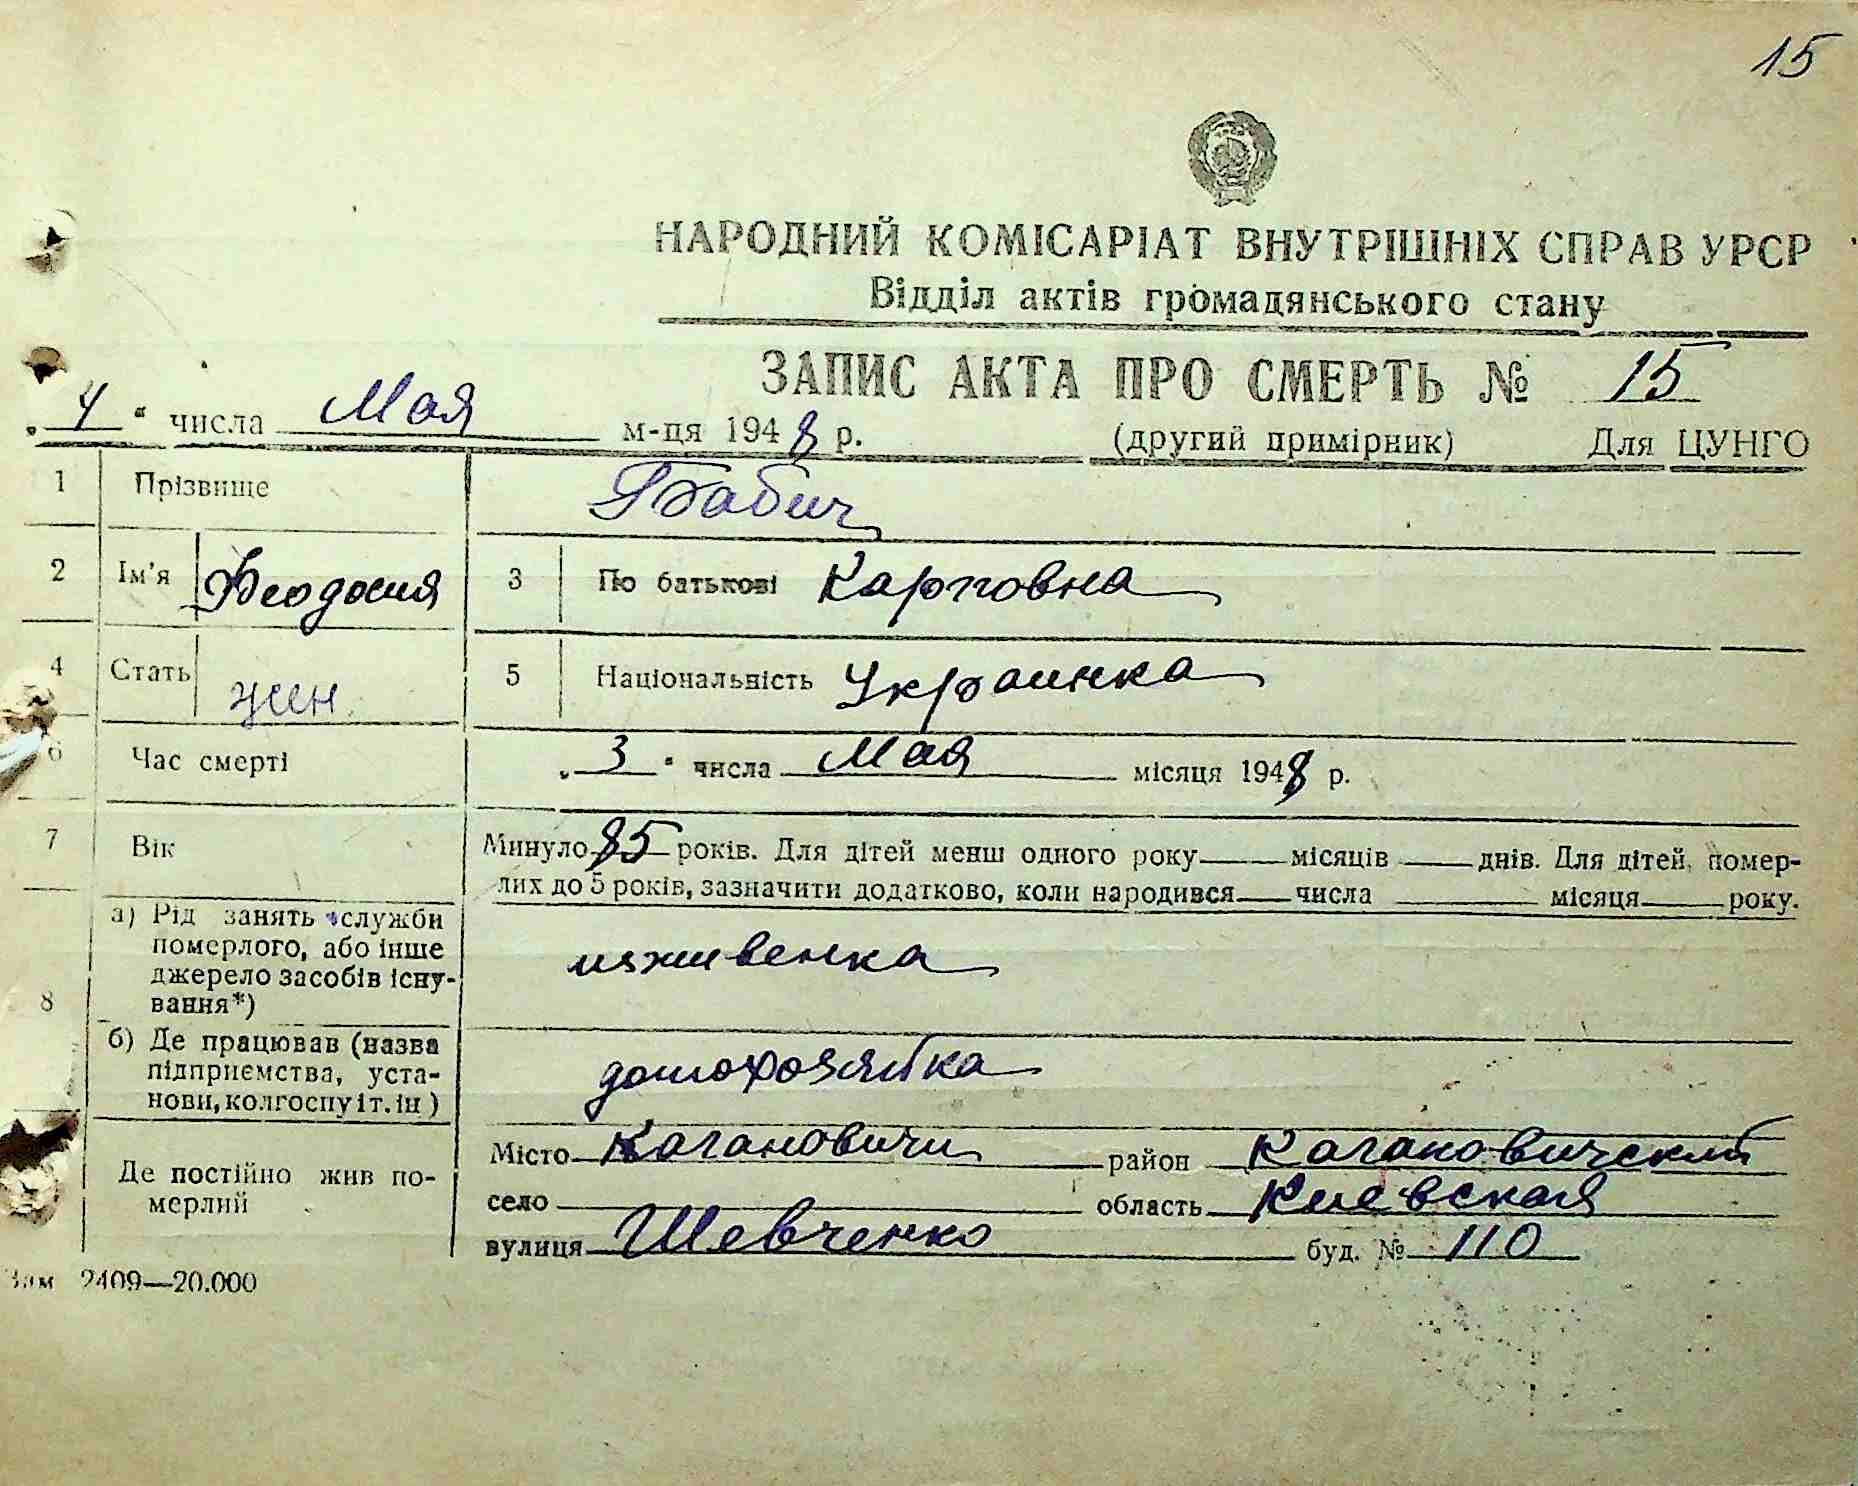 15
НАРОДНИЙ КОМІСАРІАТ ВНУТРІШНІХ СПРАВ УРСР
Відділ актів громадянського стану
ЗАПИС АКТА ПРО СМЕРТЬ № 15
„4“ числа Мая м-ця 1948 р. (другий примірник) Для ЦУНГО
1 Прізвище Бабич
2 Ім'я Феодосия 3 По батькові Карповна
4 Стать жен 5 Національність Украинка
6 Час смерті „3“ числа Мая місяця 1948 р.
7 Вік Минуло 85 років. Для дітей менш одного року місяців днів. Для дітей, помер-
лих до 5 років, зазначити додатково, коли народився числа місяця року.
8 а) Рід занять служби
померлого, або інше
джерело засобів існу-
вання*)
иждивенка
б) Де працював (назва
підприємства, уста-
нови, колгоспу і т. ін)
домохозяйка
Де постійно жив по-
мерлий
Місто Кагановичи район Кагановичский
село область Киевская
вулиця Шевченко буд. № 110
Зам 2409—20.000